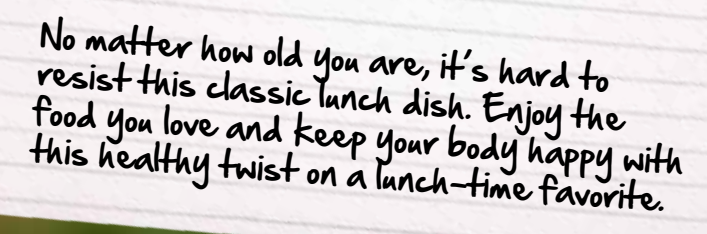 No matter how old you are, it's hard to
resist this classic lunch dish. Enjoy the
food you love and keep your body happy with
this healthy twist on a lunch-time favorite.